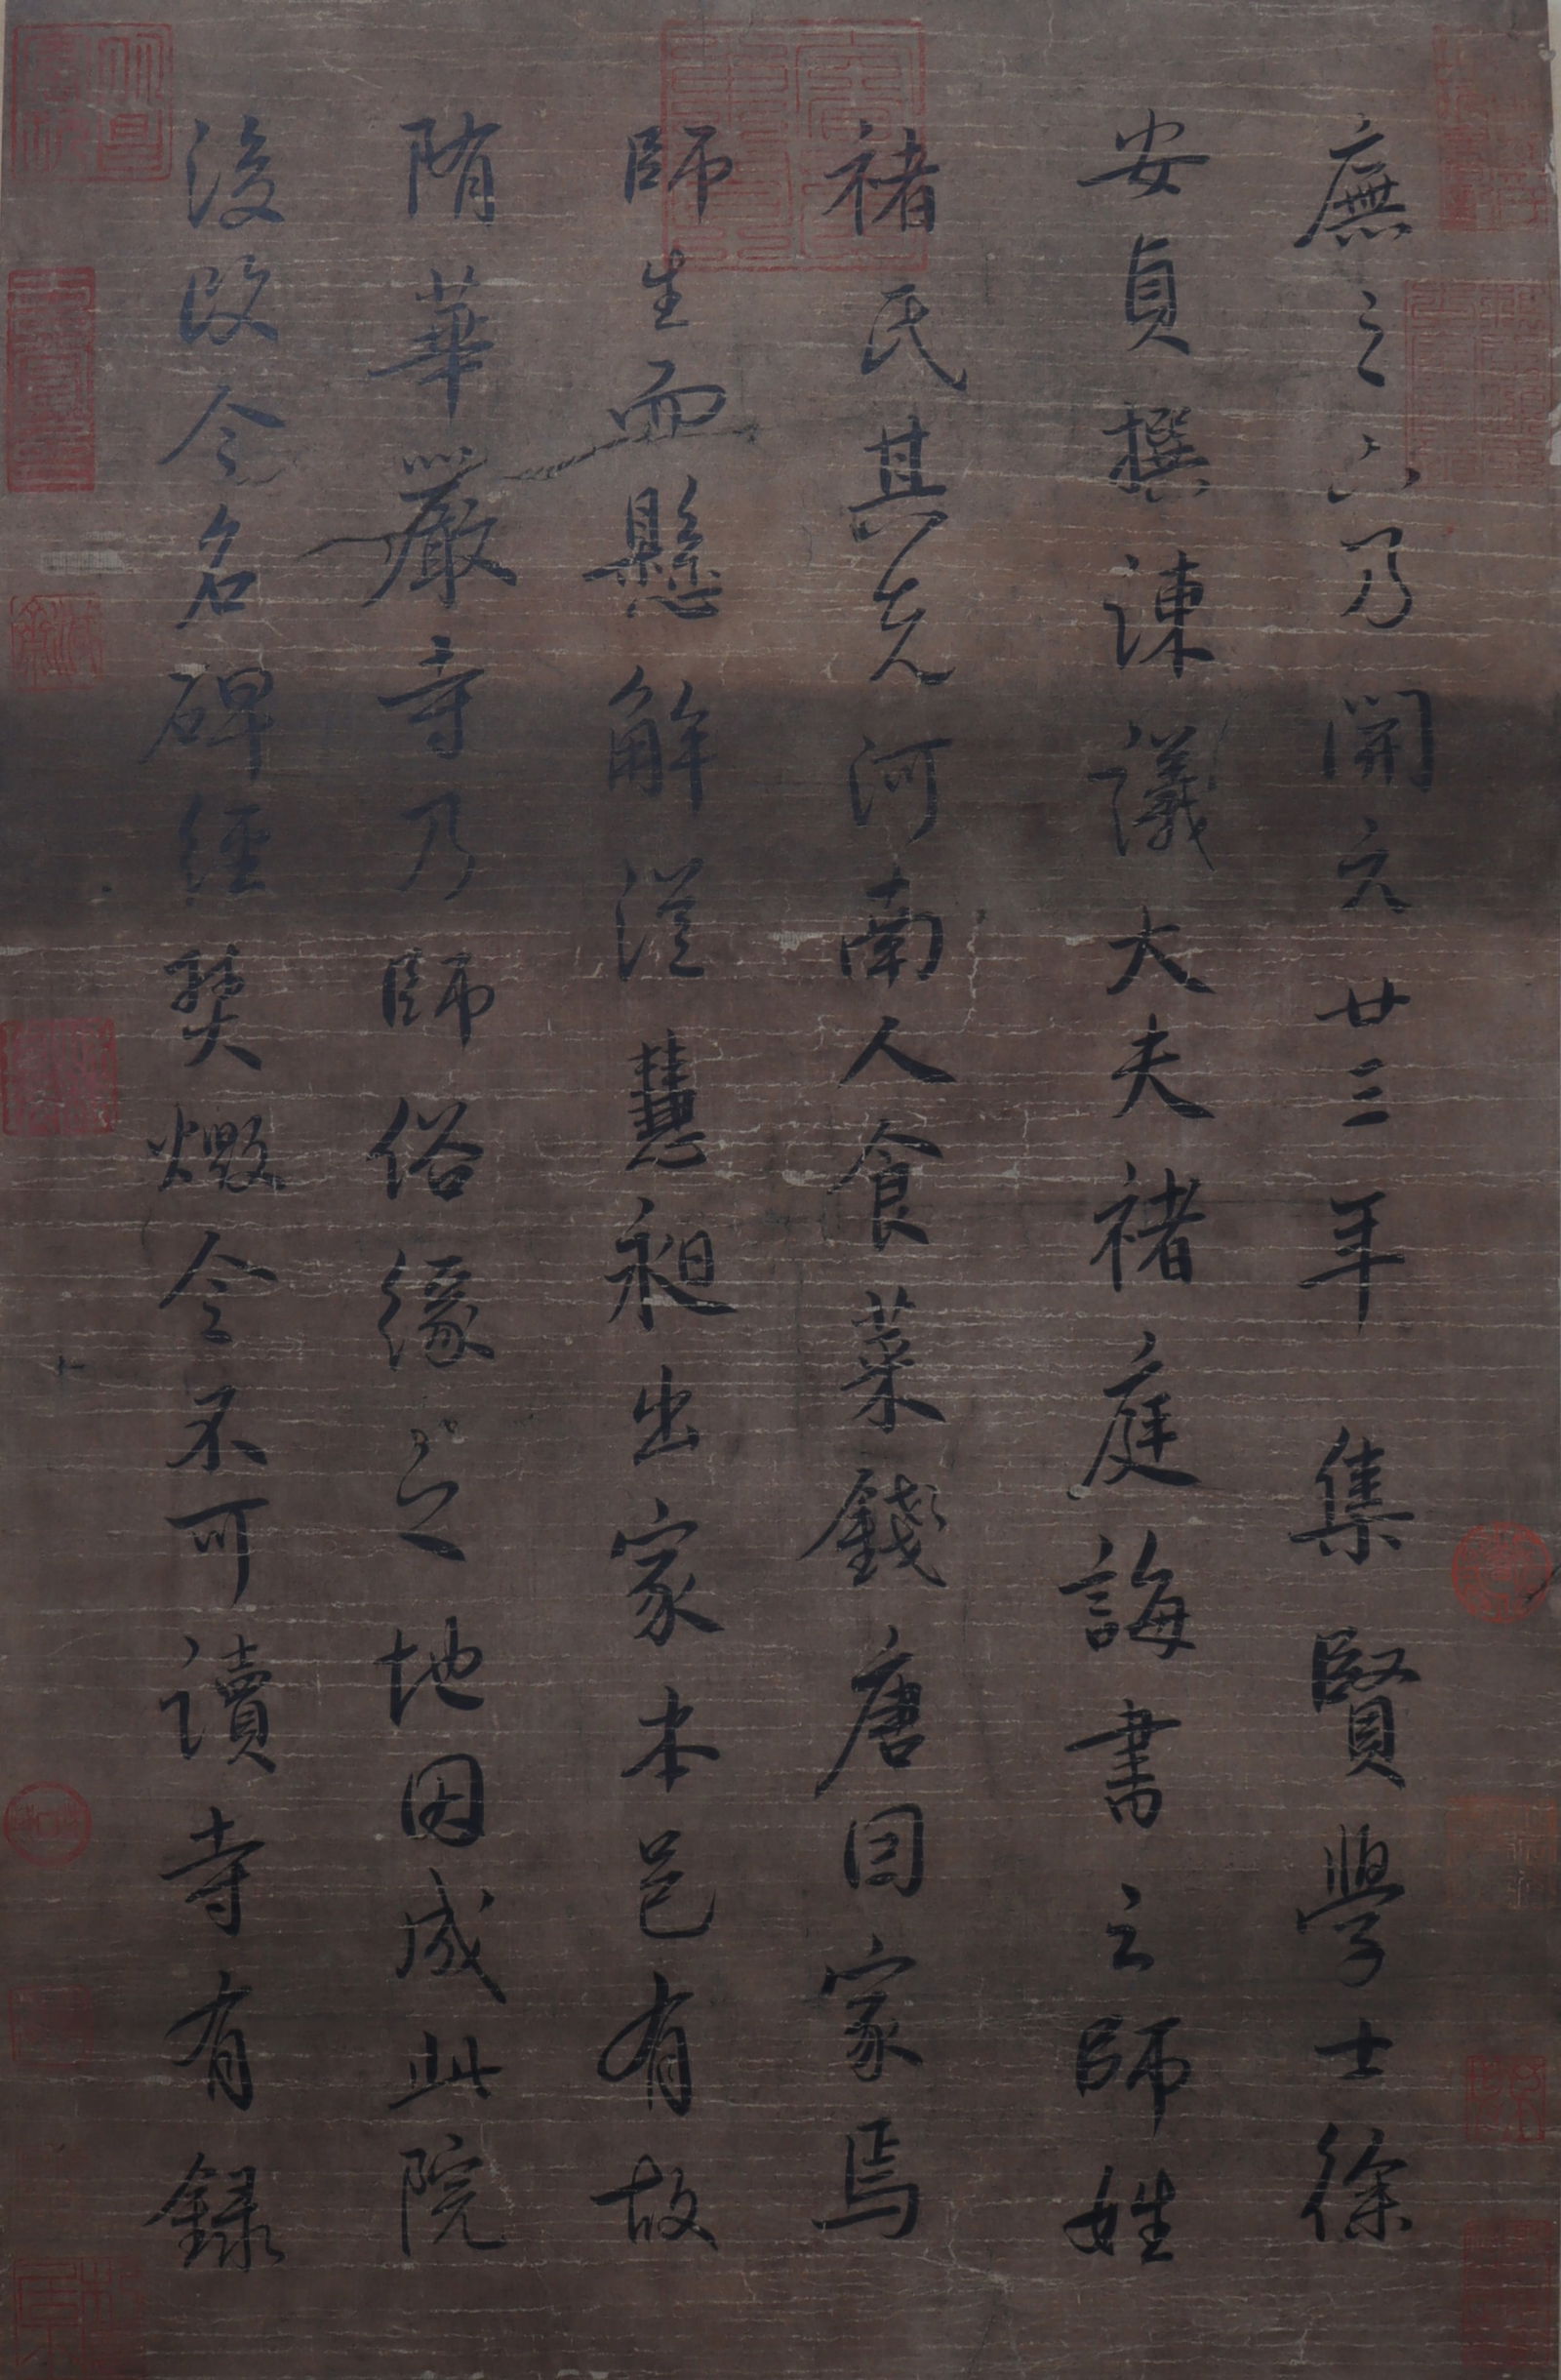 廡之下乃開元廿三年集賢學士徐
安貞撰諫議大夫褚庭誨書之師姓
褚氏其先河南人食菜錢唐因家焉
師生而懸解從慧昶出家本邑有故
隋華嚴寺乃師俗緣之地因成此院
後改今名碑經焚燬今不可讀寺有錄